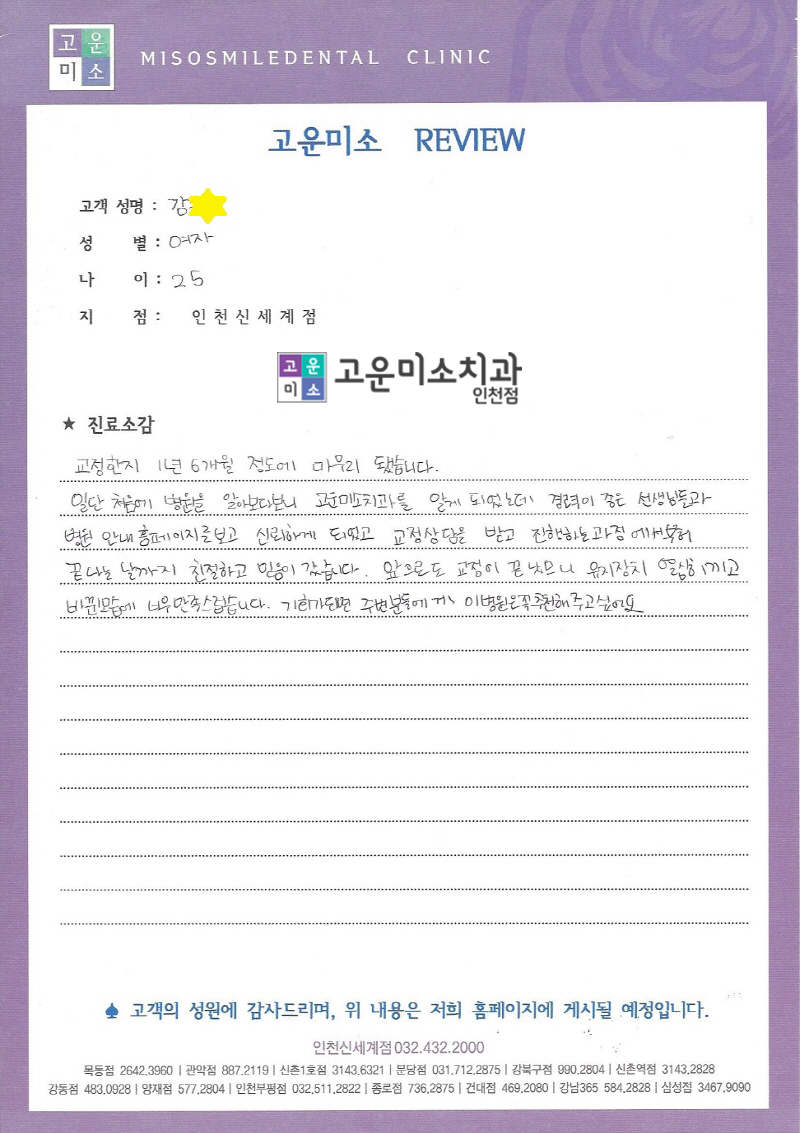 고운
미소
MISOSMILEDENTAL CLINIC
고운미소 REVIEW
고객 성명 : 감
성 별 : 여자
나 이 : 25
지 점 : 인천신세계점
고운
미소
고운미소치과
인천점
★ 진료소감
교정한지 1년 6개월 정도에 마무리 됐습니다.
일단 처음에 병원을 알아보다보니 고운미소치과를 알게 되었는데 경력이 좋은 선생님들과
병원 안내 홈페이지를보고 신뢰하게 되었고 교정상담을 받고 진행하는과정에서부터
끝나는 날까지 친절하고 믿음이 갔습니다. 앞으로도 교정이 끝났으니 유지장치 열심히끼고
바뀐모습에 너무만족스럽습니다. 기회가되면 주변분들에게 이병원은꼭추천해주고싶어요
♠ 고객의 성원에 감사드리며, 위 내용은 저희 홈페이지에 게시될 예정입니다.
인천신세계점 032.432.2000
목동점 2642.3960 | 관악점 887.2119 | 신촌1호점 3143.6321 | 분당점 031.712.2875 | 강북구점 990.2804 | 신촌역점 3143.2828
강동점 483.0928 | 양재점 577.2804 | 인천부평점 032.511.2822 | 종로점 736.2875 | 건대점 469.2080 | 강남365 584.2828 | 삼성점 3467.9090